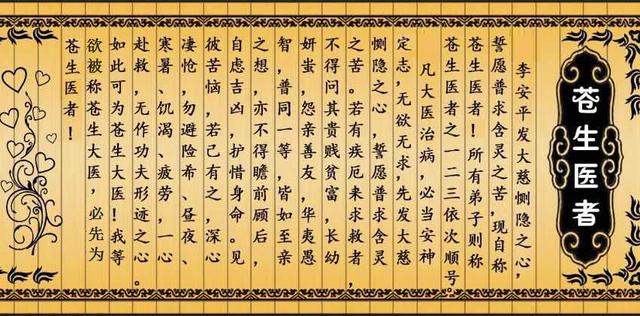 苍生医者
李安平发大慈恻隐之心，
誓愿普求含灵之苦，现自称
苍生医者！所有弟子则称
苍生医者之一二三依次顺号。
凡大医治病，必当安神
定志，无欲无求，先发大慈
恻隐之心，誓愿普求含灵
之苦。若有疾厄来求救者，
不得问其贵贱贫富，长幼
妍蚩，怨亲善友，华夷愚
智，普同一等，皆如至亲
之想，亦不得瞻前顾后，
自虑吉凶，护惜身命。见
彼苦恼，若己有之，深心
凄怆，勿避险希、昼夜、
寒暑、饥渴、疲劳，一心
赴救，无作功夫形迹之心。
如此可为苍生大医！我等
欲被称苍生大医，必先为
苍生医者！